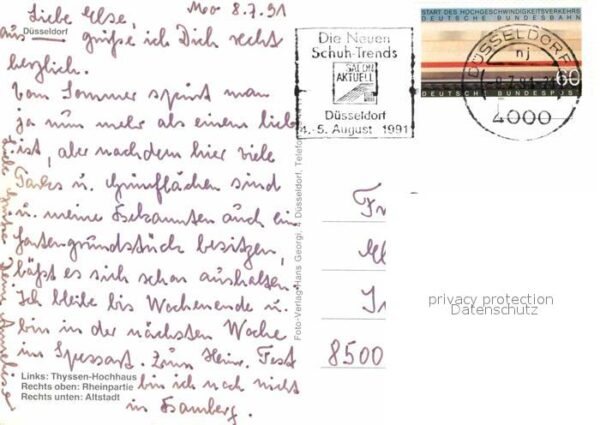 Mo 8.7.91
Liebe Else,
aus Düsseldorf grüße ich Dich recht
herzlich.
Vom Sommer spürt man
ja nun mehr als einem lieb
ist, aber nachdem hier viele
Parks u. Grünflächen sind
u. meine Bekannten auch ein
Gartengrundstück besitzen,
läßt es sich schon aushalten.
Ich bleibe bis Wochenende u.
bin in der nächsten Woche
im Spessart. Zum Heinr. Fest
bin ich noch nicht
in Bamberg.
Liebe Grüße Deine Anneliese
Links: Thyssen-Hochhaus
Rechts oben: Rheinpartie
Rechts unten: Altstadt
Foto-Verlag Hans Georgi, 4 Düsseldorf, Telefo
Die Neuen
Schuh-Trends
SALON
AKTUELL
Düsseldorf
4.-5. August 1991
START DES HOCHGESCHWINDIGKEITSVERKEHRS
DEUTSCHE BUNDESBAHN
60
DEUTSCHE BUNDESPOST
DÜSSELDORF
nj
4000
8500
privacy protection
Datenschutz